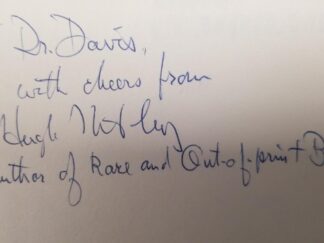 Dr. Davis,
with cheers from
Hugh
Author of Rare and Out-of-print B